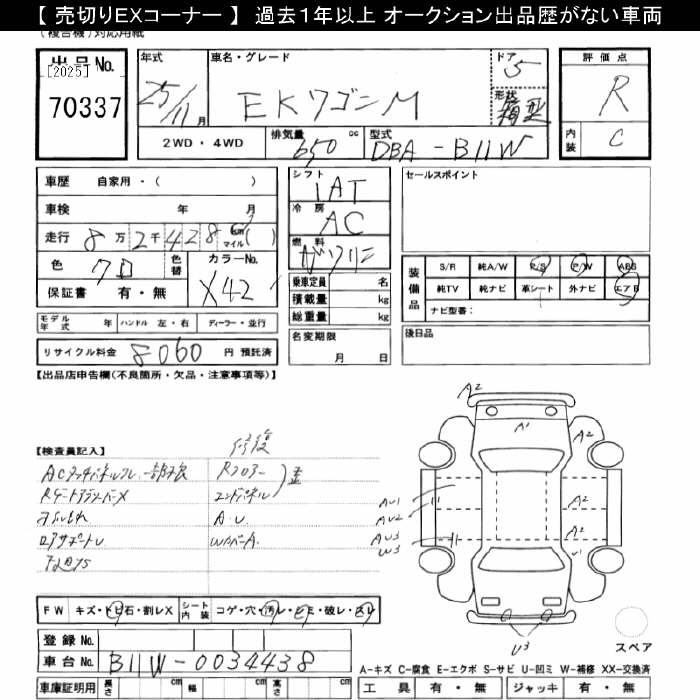 【 売切りEXコーナー 】 過去1年以上 オークション出品歴がない車両
(複合機)対応用紙
出品No.
[2025]
70337
年式
25/11 月
車名・グレード
EKワゴンM
ドア
5
形状
箱型
評価点
R
内装
C
2WD・4WD
排気量
650 cc
型式
DBA-B11W
車歴 自家用・( )
車検 年 月
走行 8万2千428 km マイル ( )
色 クロ 色替
カラーNo.
X42
保証書 有・無
シフト
IAT
冷房
AC
燃料
ガソリン
乗車定員 名
積載量 kg
総重量 kg
名変期限
月 日
セールスポイント
装備品
S/R 純A/W P/S P/W ABS
純TV 純ナビ 革シート 外ナビ エアB
ナビ型番:
後日品
モデル年式 年 ハンドル 左・右 ディーラー・並行
リサイクル料金 8060 円 預託済
【出品店申告欄(不良箇所・欠品・注意事項等)】
【検査員記入】
修復
ACタッチパネルフレ一部不良
Rフロアー
エンドパネル
A.U
FW キズ・トビ石・割レX
シート内装 コゲ・穴・汚レ・シミ・破レ・スレ
登録No.
車台No. B11W-0034438
車庫証明用 長さ cm 幅 cm 高さ cm
A2
A1
A2
AU1
AU2
AU3
W3
A2
A2
U1
U3
スペア
A-キズ C-腐食 E-エクボ S-サビ U-凹ミ W-補修 XX-交換済
工具 有・無 ジャッキ 有・無